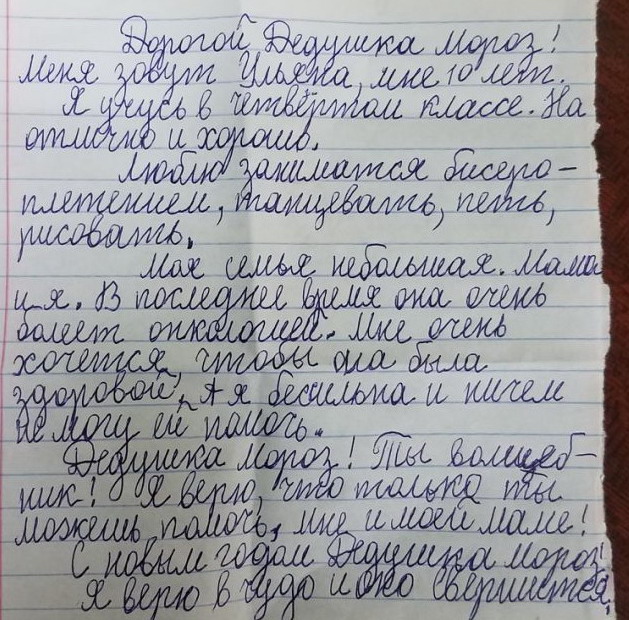 Дорогой Дедушка Мороз!
Меня зовут Ульяна, мне 10 лет.
Я учусь в четвёртом классе. На
отлично и хорошо.
Люблю заниматся бисеро-
плетением, танцевать, петь,
рисовать.
Моя семья небольшая. Мама
и я. В последнее время она очень
болеет онкологией. Мне очень
хочется, чтобы она была
здоровой. А я бесильна и ничем
не могу ей помочь.
Дедушка Мороз! Ты волшеб-
ник! Я верю, что только ты
можешь помочь, мне и моей маме!
С новым годом Дедушка мороз!
Я верю в чудо и оно свершится.